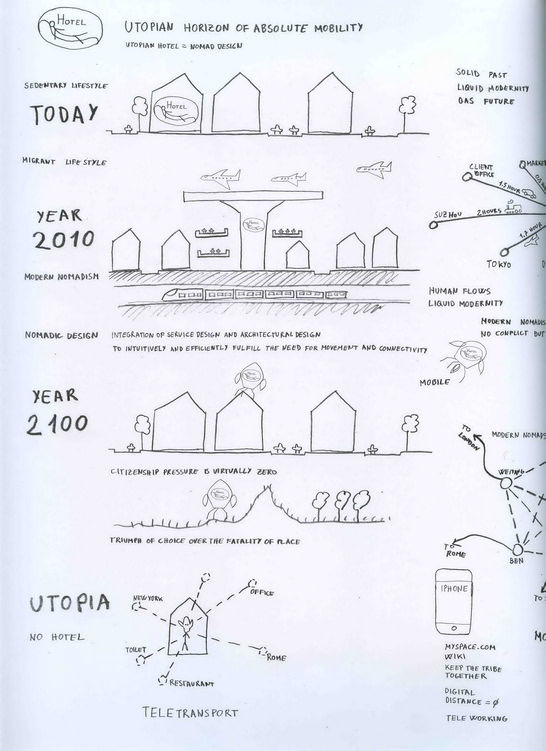 HOTEL
UTOPIAN HORIZON OF ABSOLUTE MOBILITY
UTOPIAN HOTEL = NOMAD DESIGN
SEDENTARY LIFESTYLE
TODAY
HOTEL
SOLID PAST
LIQUID MODERNITY
GAS FUTURE
MIGRANT LIFESTYLE
YEAR
2010
MODERN NOMADISM
HOTEL
CLIENT
OFFICE
MARKET
1.5 HOUR
SUZHOU
2 HOURS
TOKYO
HUMAN FLOWS
LIQUID MODERNITY
NOMADIC DESIGN
INTEGRATION OF SERVICE DESIGN AND ARCHITECTURAL DESIGN
TO INTUITIVELY AND EFFICIENTLY FULFILL THE NEED FOR MOVEMENT AND CONNECTIVITY
MODERN NOMADIS
NO CONFLICT BUT
HOTEL
MOBILE
YEAR
2100
HOTEL
CITIZENSHIP PRESSURE IS VIRTUALLY ZERO
HOTEL
TRIUMPH OF CHOICE OVER THE FATALITY OF PLACE
TO
LONDON
MODERN NOMADS
TO
ROME
BEN
UTOPIA
NO HOTEL
NEW YORK
OFFICE
TOILET
ROME
RESTAURANT
TELETRANSPORT
IPHONE
MYSPACE.COM
WIKI
KEEP THE TRIBE
TOGETHER
DIGITAL
DISTANCE = Ø
TELE WORKING
TO